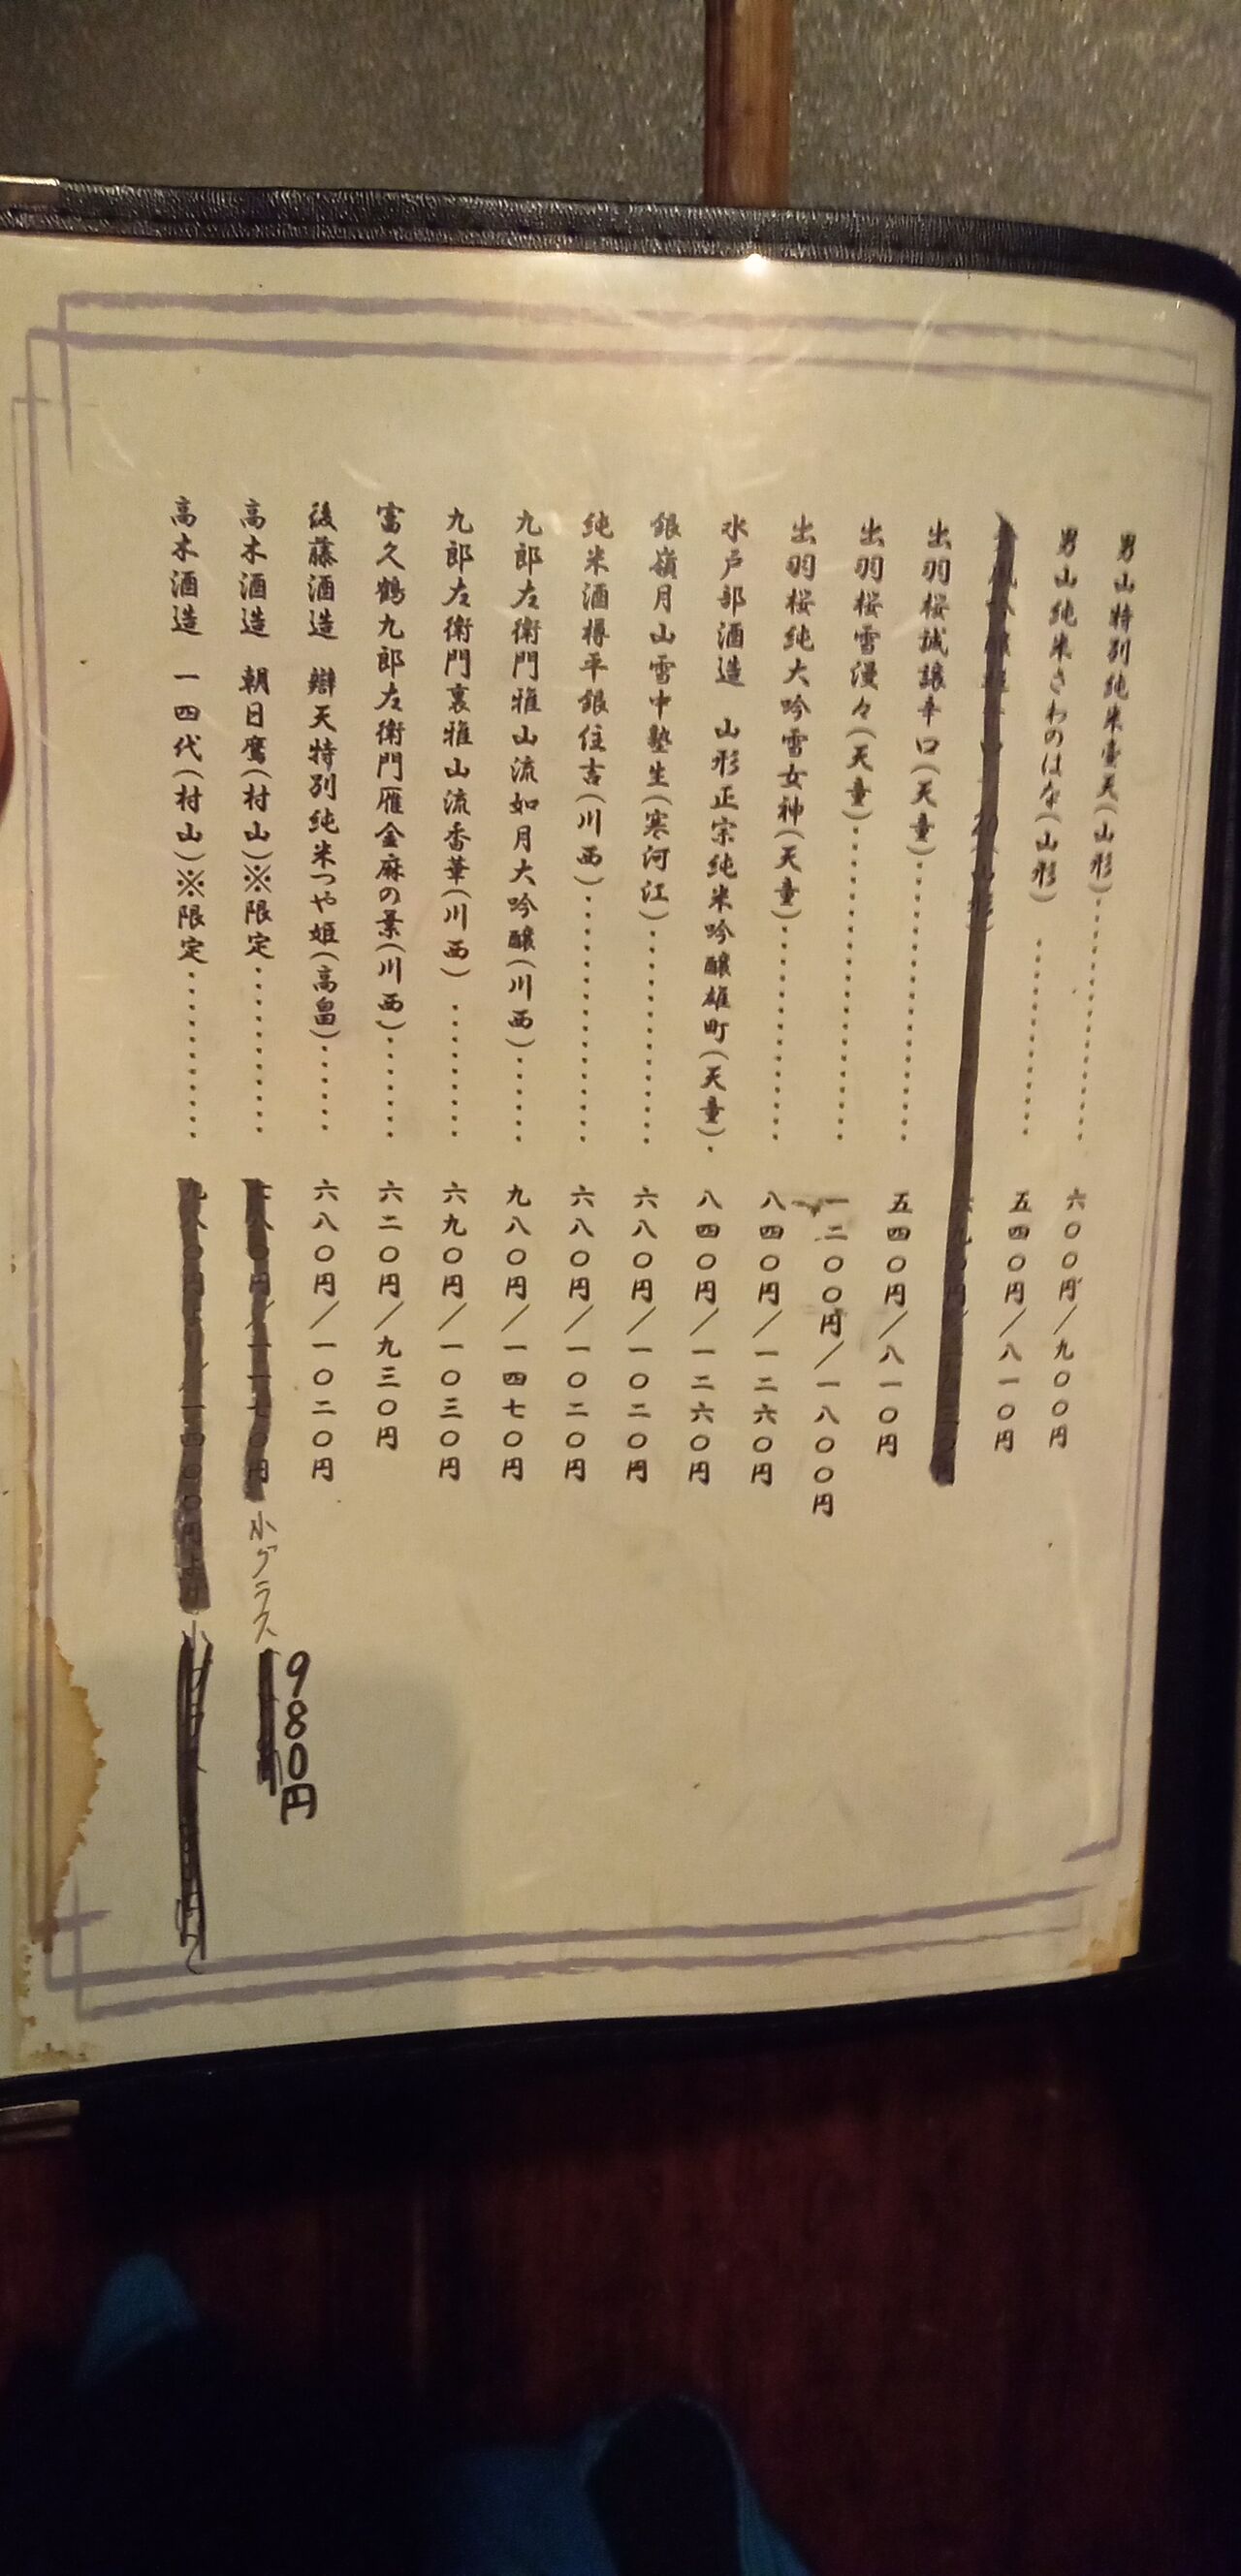 男山特別純米壺天(山形)・・・・・・・・・・・・ 六〇〇円/九〇〇円
男山純米さわのはな(山形)・・・・・・・・・・ 五四〇円/八一〇円
出羽桜誠醸辛口(天童)・・・・・・・・・・・・・ 五四〇円/八一〇円
出羽桜雪漫々(天童)・・・・・・・・・・・・・・ 一二〇〇円/一八〇〇円
出羽桜純大吟雪女神(天童)・・・・・・・・・・ 八四〇円/一二六〇円
水戸部酒造 山形正宗純米吟醸雄町(天童)・ 八四〇円/一二六〇円
銀嶺月山雪中塾生(寒河江)・・・・・・・・・・ 六八〇円/一〇二〇円
純米酒樽平銀住吉(川西)・・・・・・・・・・・ 六八〇円/一〇二〇円
九郎左衛門雅山流如月大吟醸(川西)・・・・・ 九八〇円/一四七〇円
九郎左衛門裏雅山流香華(川西)・・・・・・・ 六九〇円/一〇三〇円
富久鶴九郎左衛門雁金麻の景(川西)・・・・・ 六二〇円/九三〇円
後藤酒造 辯天特別純米つや姫(高畠)・・・・・ 六八〇円/一〇二〇円
高木酒造 朝日鷹(村山)※限定・・・・・・・・ 小グラス 980円
高木酒造 一四代(村山)※限定・・・・・・・・